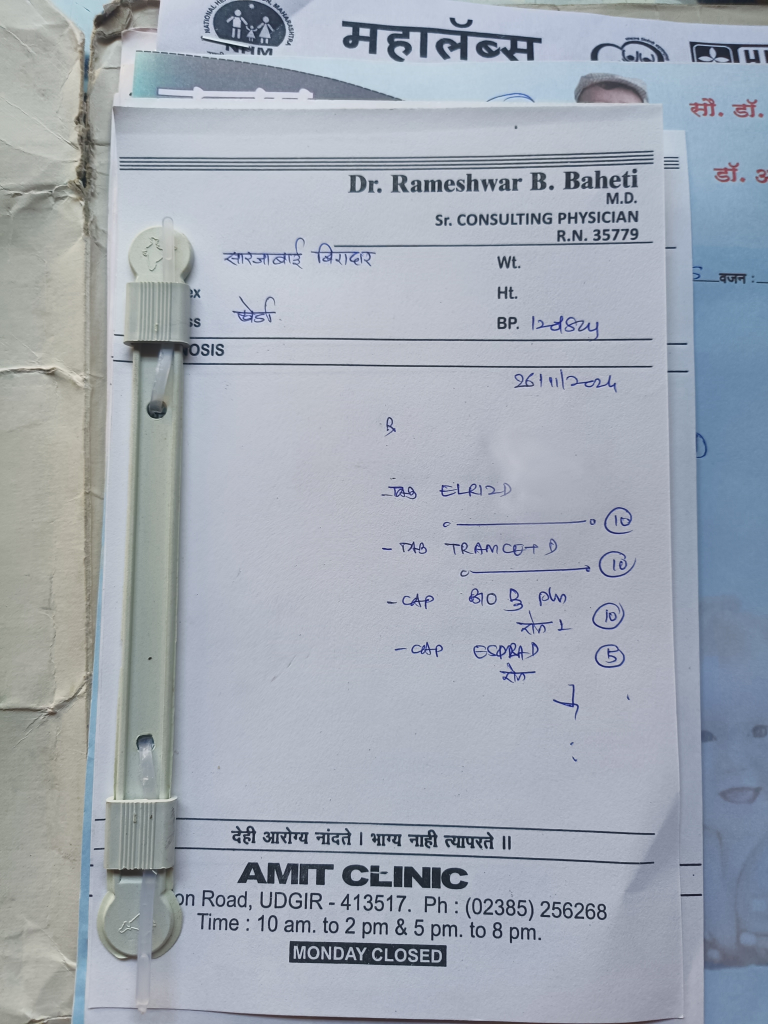 NHM
महालॅब्स
सौ. डॉ.
डॉ. अ
वजन :
Dr. Rameshwar B. Baheti
M.D.
Sr. CONSULTING PHYSICIAN
R.N. 35779
सारजाबाई बिरादार
Wt.
ex
Ht.
ss
BP.
OSIS
26/11/2024
℞
- TAB ELRIZD
10
- TAB TRAMCET D
10
- CAP BIO D3 plus
रोज 1
10
- CAP ESPRAD
5
रोज
देही आरोग्य नांदते । भाग्य नाही त्यापरते ॥
AMIT CLINIC
on Road, UDGIR - 413517. Ph : (02385) 256268
Time : 10 am. to 2 pm & 5 pm. to 8 pm.
MONDAY CLOSED